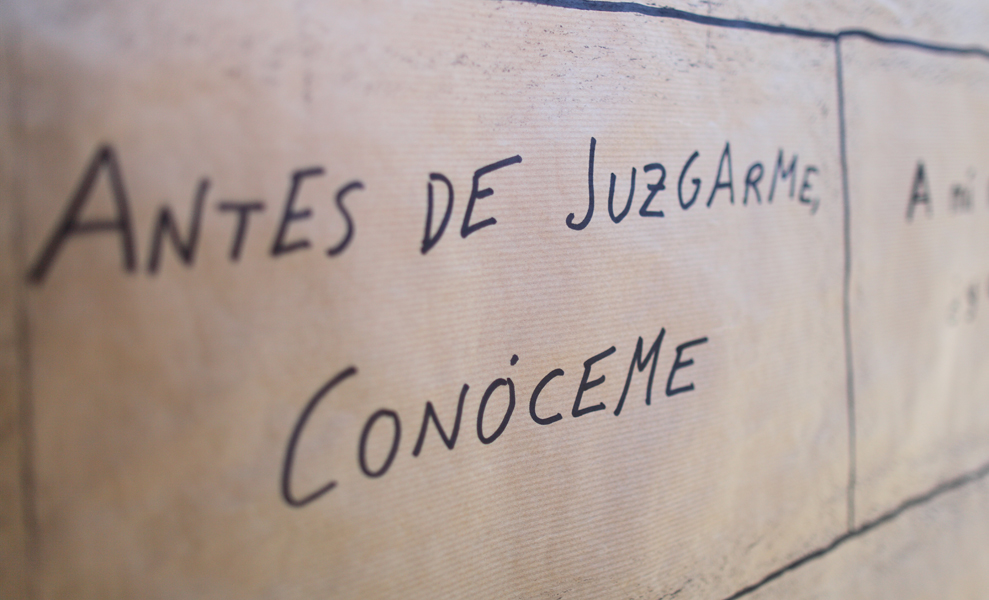 ANTES DE JUZGARME,
CONÓCEME
A mi